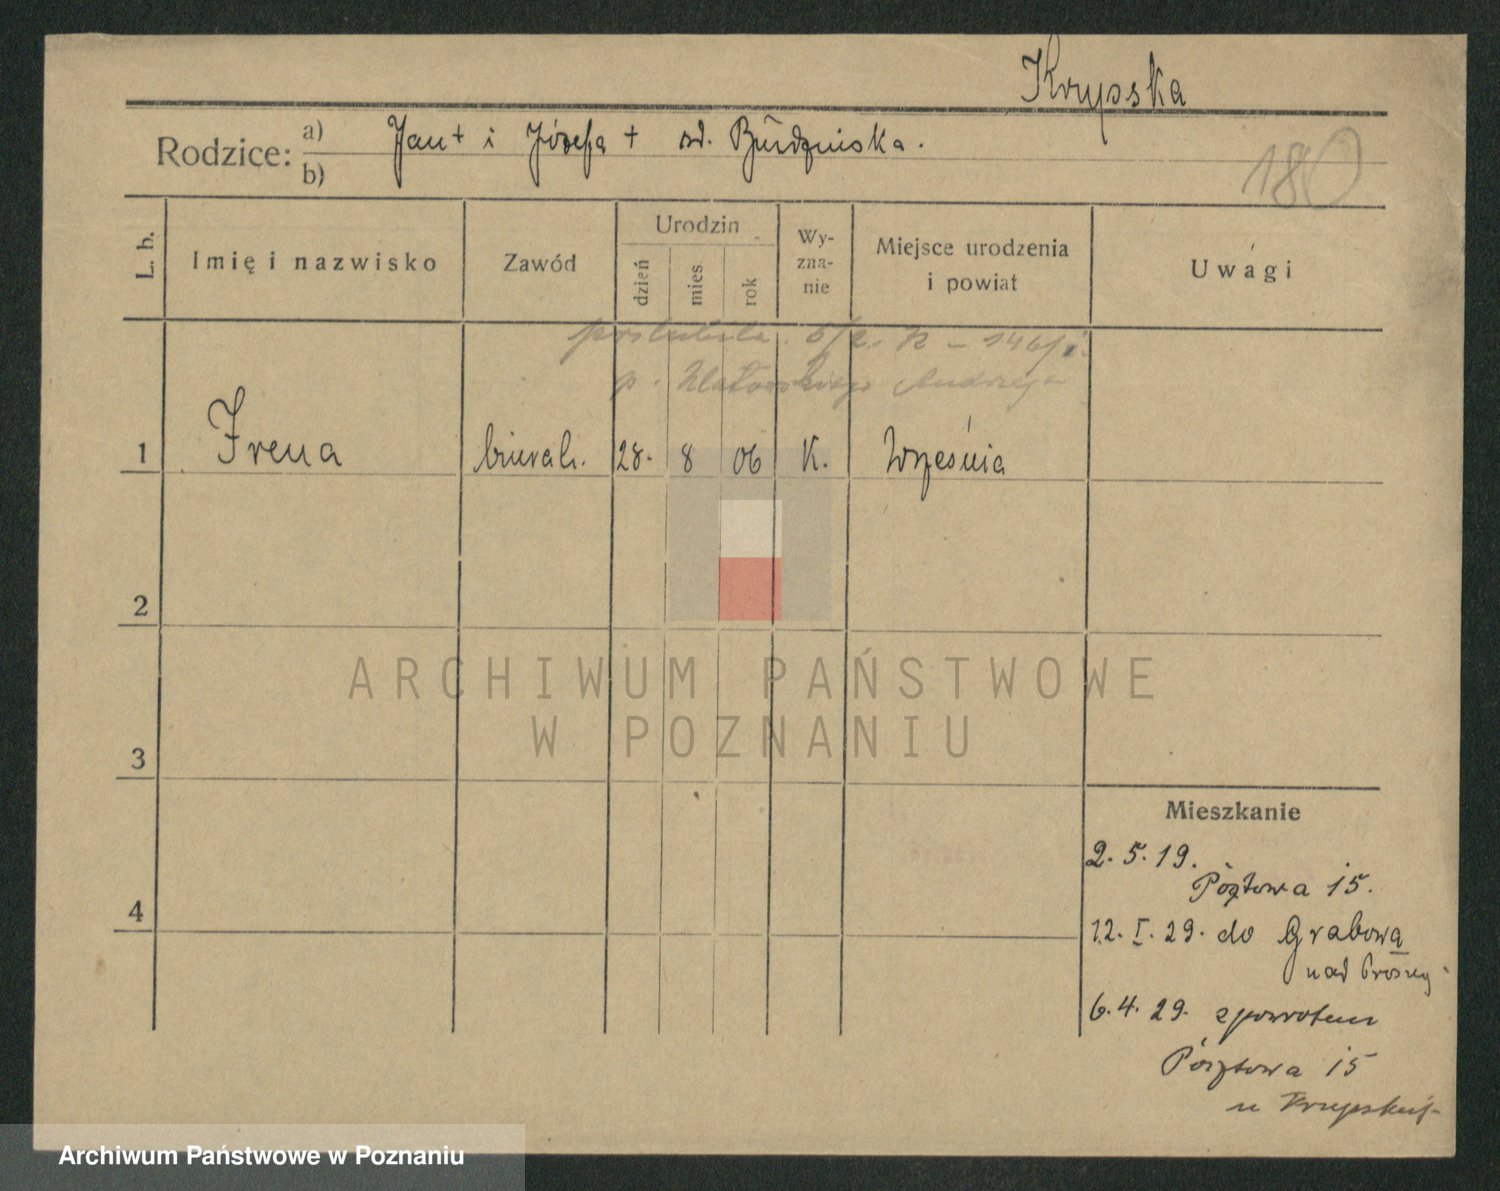 Krzyska
Rodzice: a) b) Jan + i Józefa + zd. Budzińska.
180
L. b. Imię i nazwisko Zawód Urodzin dzień mies rok Wy-zna-nie Miejsce urodzenia i powiat Uwagi
poślubiła 5/2. 
p. Andrzeja
1 Irena biural. 28. 8 06 K. Września
2
ARCHIWUM PAŃSTWOWE
W POZNANIU
3
Mieszkanie
2. 5. 19.
Pocztowa 15.
4
12. I. 29. do Grabowa
nad Prosną
6. 4. 29. zpowrotem
Pocztowa 15
u
Archiwum Państwowe w Poznaniu